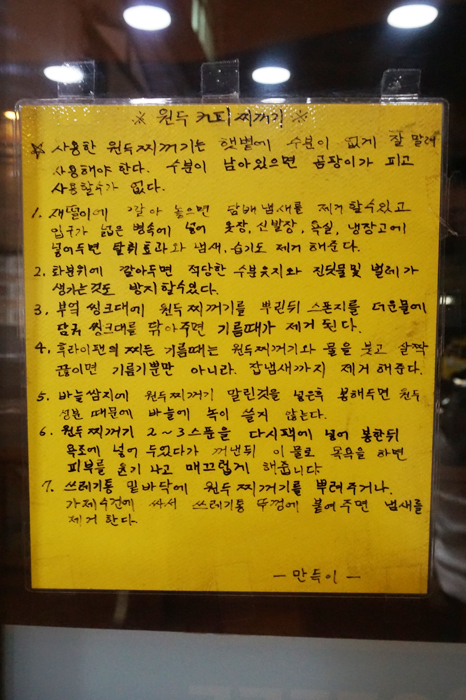 ※ 원두 커피 찌꺼기 ※
☆ 사용한 원두찌꺼기는 햇볕에 수분이 없게 잘 말려
사용해야 한다. 수분이 남아있으면 곰팡이가 피고
사용할수가 없다.
1. 재떨이에 깔아 놓으면 담배냄새를 제거할수있고
입구가 넓은 병속에 넣어 옷장, 신발장, 욕실, 냉장고에
넣어두면 탈취효과와 냄새, 습기도 제거 해준다.
2. 화분위에 깔아두면 적당한 수분유지와 진딧물및 벌레가
생기는것도 방지할수있다.
3. 부엌 씽크대에 원두찌꺼기를 뿌린뒤 스폰지를 더운물에
담궈 씽크대를 닦아주면 기름때가 제거 된다.
4. 후라이팬의 찌든 기름때는 원두찌꺼기와 물을 붓고 살짝
끓이면 기름기뿐만 아니라. 잡냄새까지 제거 해준다.
5. 바늘쌈지에 원두찌꺼기 말린것을 넣은후 봉해두면 원두
성분 때문에 바늘에 녹이 쓸지 않는다.
6. 원두찌꺼기 2~3스푼을 다시팩에 넣어 봉한뒤
욕조에 넣어 두었다가 꺼낸뒤 이 물로 목욕을 하면
피부를 윤기 나고 매끄럽게 해줍니다
7. 쓰레기통 밑바닥에 원두찌꺼기를 뿌려주거나.
가제수건에 싸서 쓰레기통 뚜껑에 붙여주면 냄새를
제거 한다.
— 만득이 —